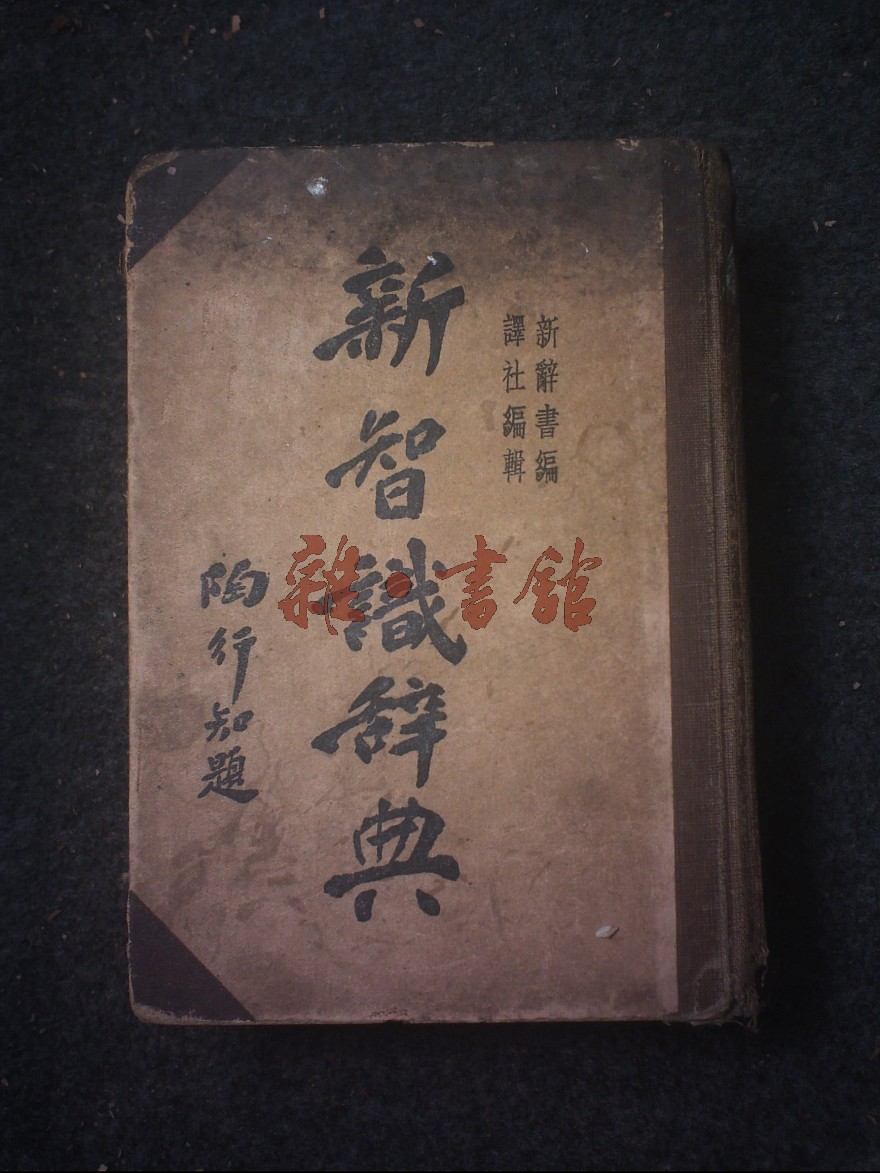 新辭書編
譯社編輯
新智識辞典
陶行知題
雜·書館